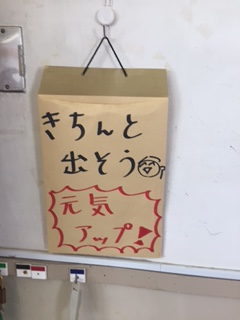 きちんと
出そう
元気
アップ!